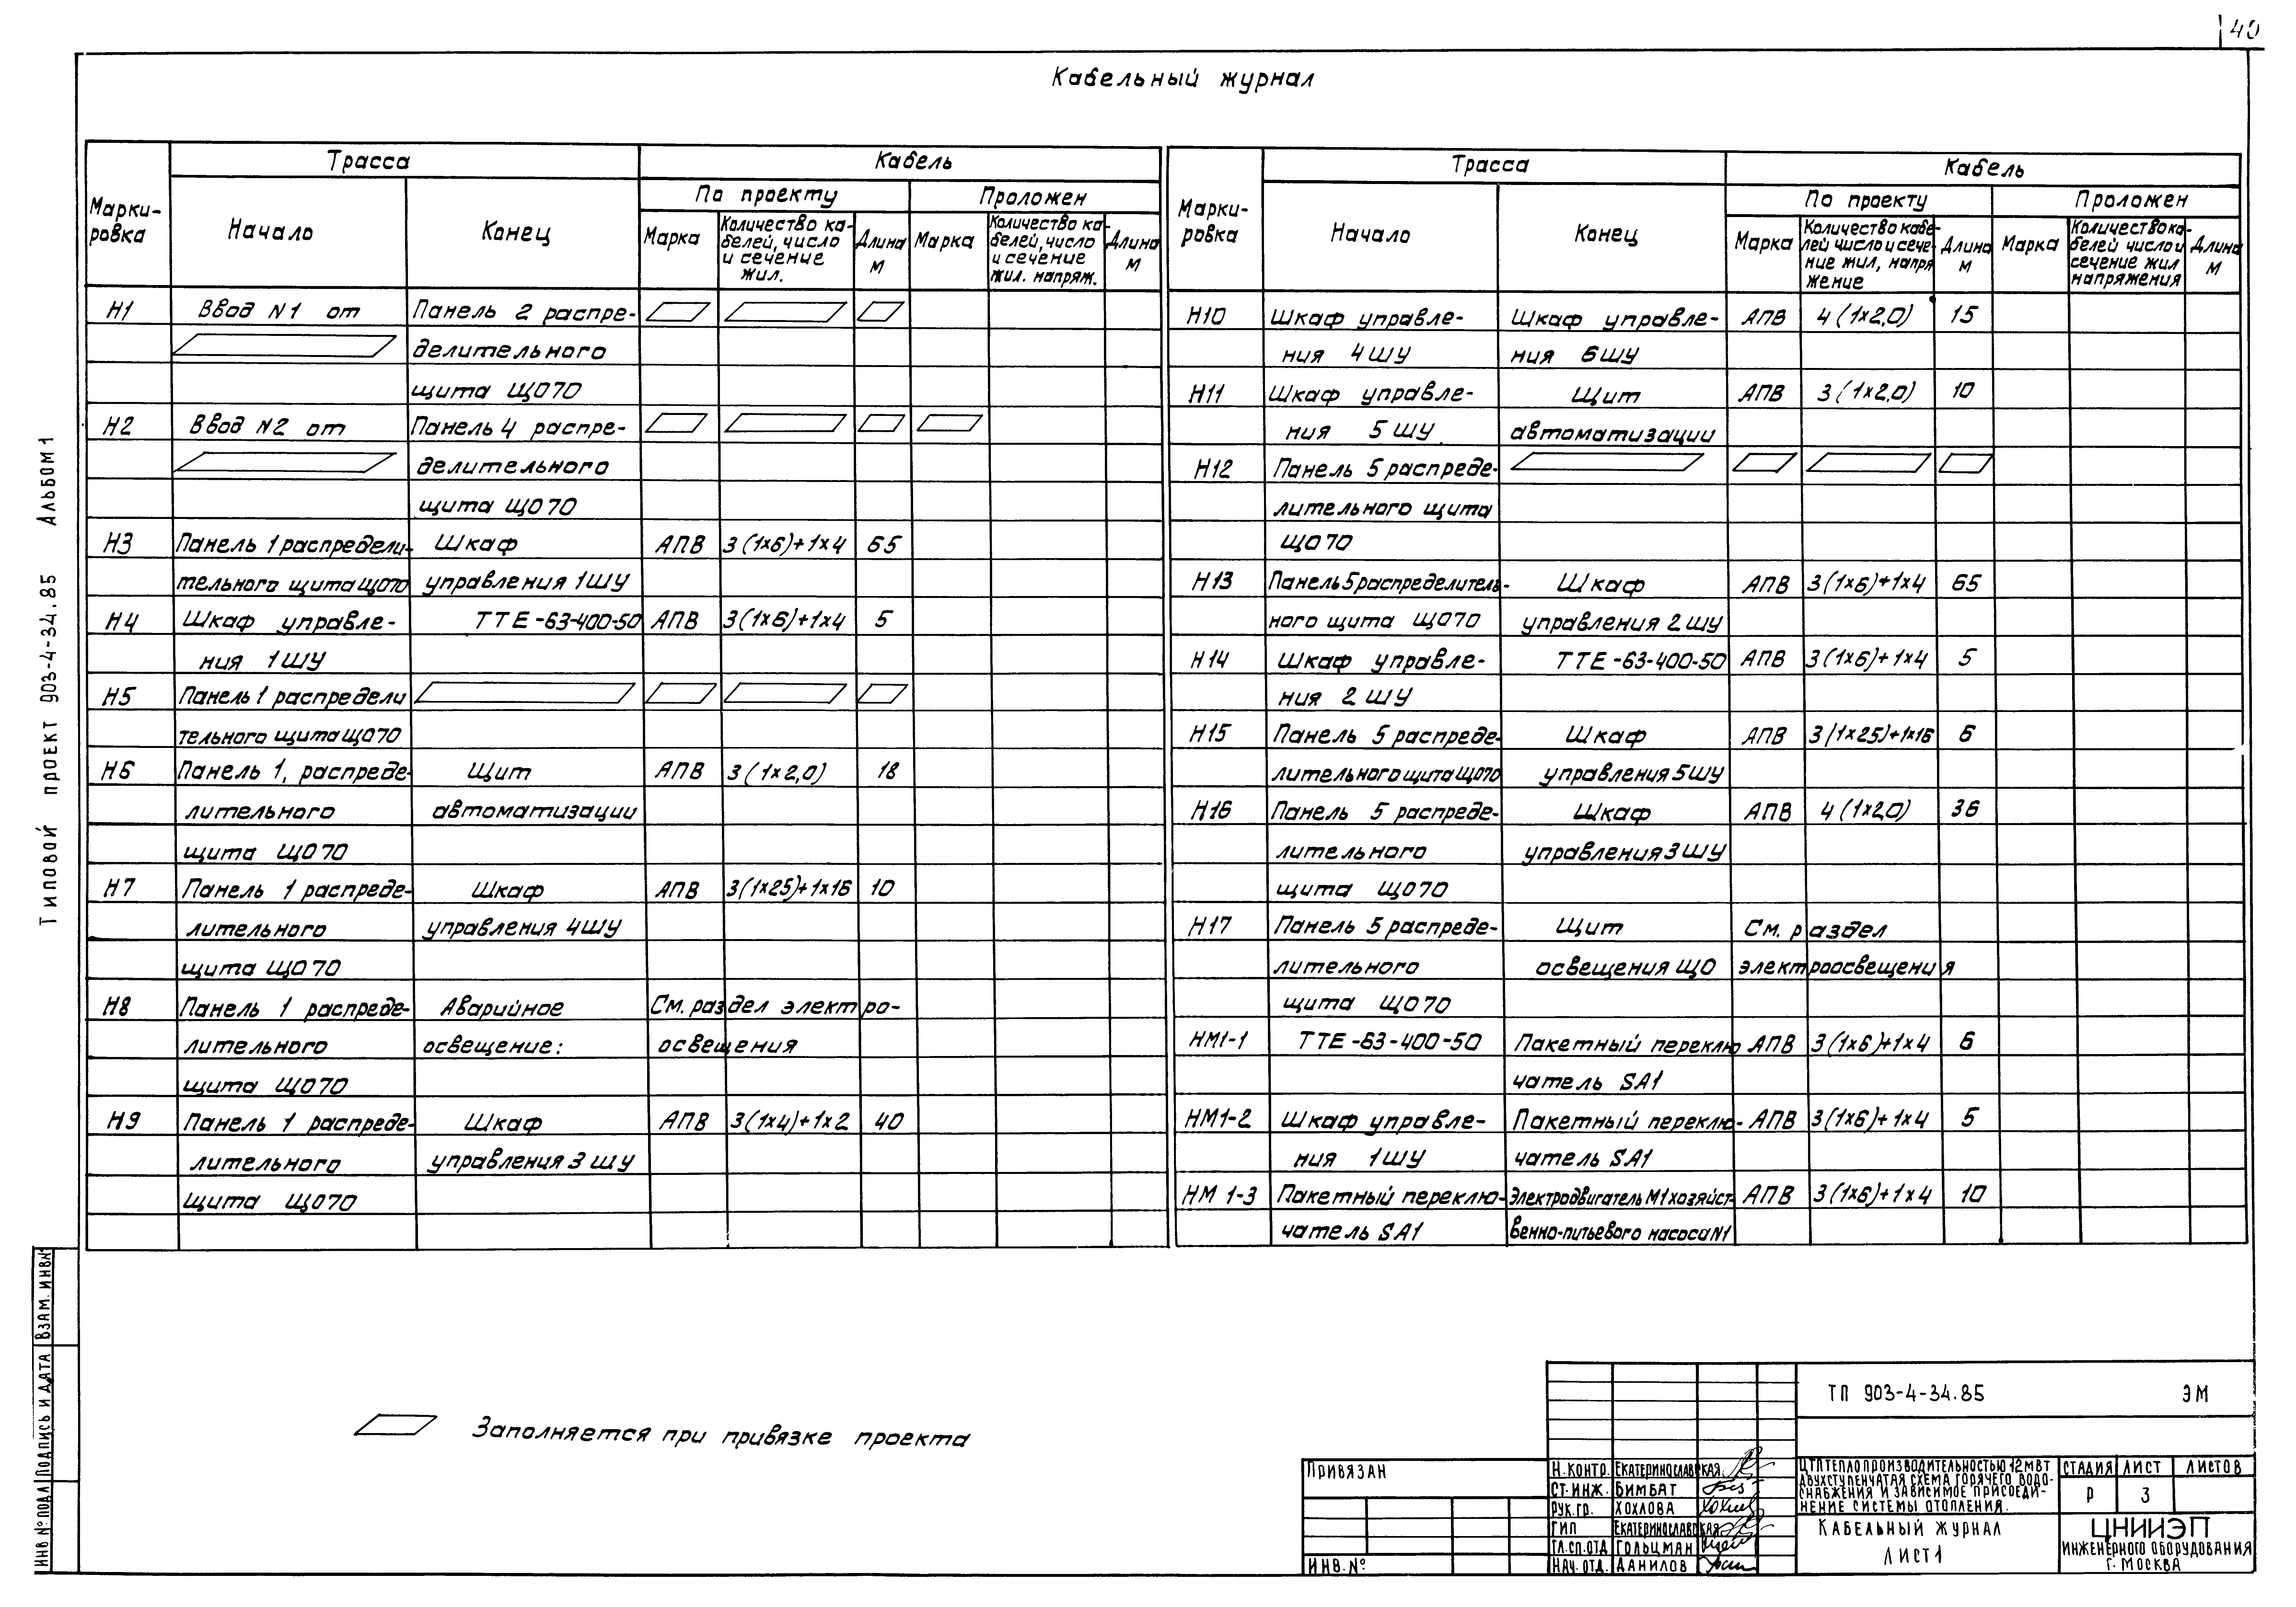 40
Кабельный журнал
Марки-
ровка
Трасса
Кабель
Начало
Конец
По проекту
Проложен
Марка
Количество ка-
белей, число
и сечение
жил.
Длина
м
Марка
Количество ка-
белей, число
и сечение
жил. напряж.
Длина
м
Н1 Ввод N1 от Панель 2 распре-
делительного
щита ЩО70
Н2 Ввод N2 от Панель 4 распре-
делительного
щита ЩО70
Н3 Панель 1 распредели- Шкаф АПВ 3(1х6)+1х4 65
тельного щита ЩО70 управления 1ШУ
Н4 Шкаф управле- ТТЕ-63-400-50 АПВ 3(1х6)+1х4 5
ния 1ШУ
Н5 Панель 1 распредели
тельного щита ЩО70
Н6 Панель 1, распреде- Щит АПВ 3(1х2,0) 18
лительного автоматизации
щита ЩО70
Н7 Панель 1 распреде- Шкаф АПВ 3(1х25)+1х16 10
лительного управления 4ШУ
щита ЩО70
Н8 Панель 1 распреде- Аварийное См. раздел электро-
лительного освещение: освещения
щита ЩО70
Н9 Панель 1 распреде- Шкаф АПВ 3(1х4)+1х2 40
лительного управления 3 ШУ
щита ЩО70
Марки-
ровка
Трасса
Кабель
Начало
Конец
По проекту
Проложен
Марка
Количество кабе-
лей число и сече-
ние жил, напря
жение
Длина
м
Марка
Количество ка-
белей число и
сечение жил
напряжения
Длина
м
Н10 Шкаф управле- Шкаф управле- АПВ 4(1х2,0) 15
ния 4ШУ ния 6ШУ
Н11 Шкаф управле- Щит АПВ 3(1х2,0) 10
ния 5ШУ автоматизации
Н12 Панель 5 распреде-
лительного щита
ЩО70
Н13 Панель 5 распределитель- Шкаф АПВ 3(1х6)+1х4 65
ного щита ЩО70 управления 2ШУ
Н14 Шкаф управле- ТТЕ-63-400-50 АПВ 3(1х6)+1х4 5
ния 2 ШУ
Н15 Панель 5 распреде- Шкаф АПВ 3(1х25)+1х16 6
лительного щита ЩО70 управления 5ШУ
Н16 Панель 5 распреде- Шкаф АПВ 4(1х2,0) 36
лительного управления 3ШУ
щита ЩО70
Н17 Панель 5 распреде- Щит См. раздел
лительного освещения ЩО электроосвещения
щита ЩО70
НМ1-1 ТТЕ-63-400-50 Пакетный переклю АПВ 3(1х6)+1х4 6
чатель SA1
НМ1-2 Шкаф управле- Пакетный переклю- АПВ 3(1х6)+1х4 5
ния 1ШУ чатель SA1
НМ 1-3 Пакетный переклю- Электродвигатель М1 хозяйст- АПВ 3(1х6)+1х4 10
чатель SA1 венно-питьевого насоса N1
Заполняется при привязке проекта
Типовой проект 903-4-34.85 Альбом 1
Инв № подл Подпись и дата Взам. инв №
Привязан
Инв. №
Н. контр. Екатеринославская
Ст. инж. Бимбат
Рук. гр. Хохлова
ГИП Екатеринославская
Гл. сп. отд Гольцман
Нач. отд. Данилов
ТП 903-4-34.85 ЭМ
ЦТП теплопроизводительностью 12МВт
двухступенчатая схема горячего водо-
снабжения и зависимое присоеди-
нение системы отопления.
Стадия Лист Листов
Р 3
Кабельный журнал
Лист 1
ЦНИИЭП
инженерного оборудования
г. Москва